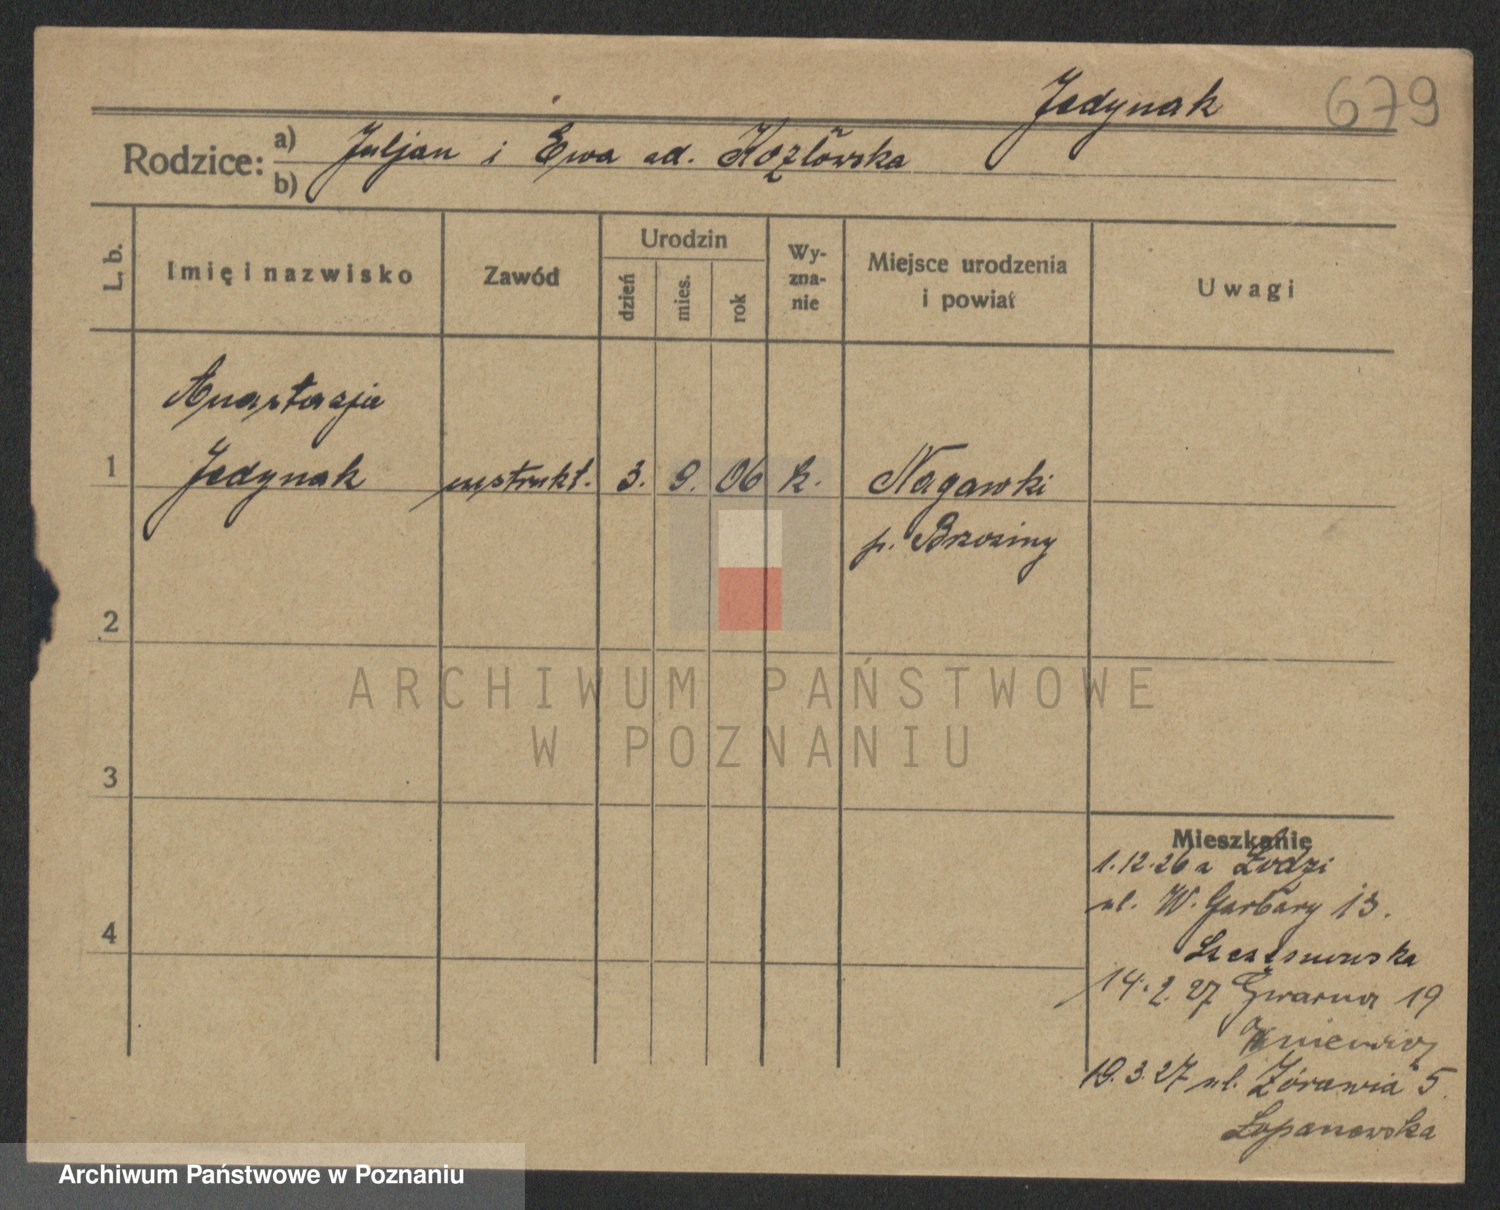 Jedynak 679
Rodzice:
a) Juljan i Ewa zd. Kozłowska
b)
L. b.
Imię i nazwisko
Zawód
Urodzin
dzień
mies.
rok
Wy-
zna-
nie
Miejsce urodzenia
i powiat
Uwagi
Anastazja
1 Jedynak instrukt. 3. 9. 06 k. Nagawki
p. Brzeziny
2
ARCHIWUM PAŃSTWOWE
W POZNANIU
3
Mieszkanie
1.12.26 z Łodzi
ul. W. Garbary 13.
4
14.2.27 Gwarna 19
19.3.27 ul. Żórawia 5.
Łopanowska
Archiwum Państwowe w Poznaniu